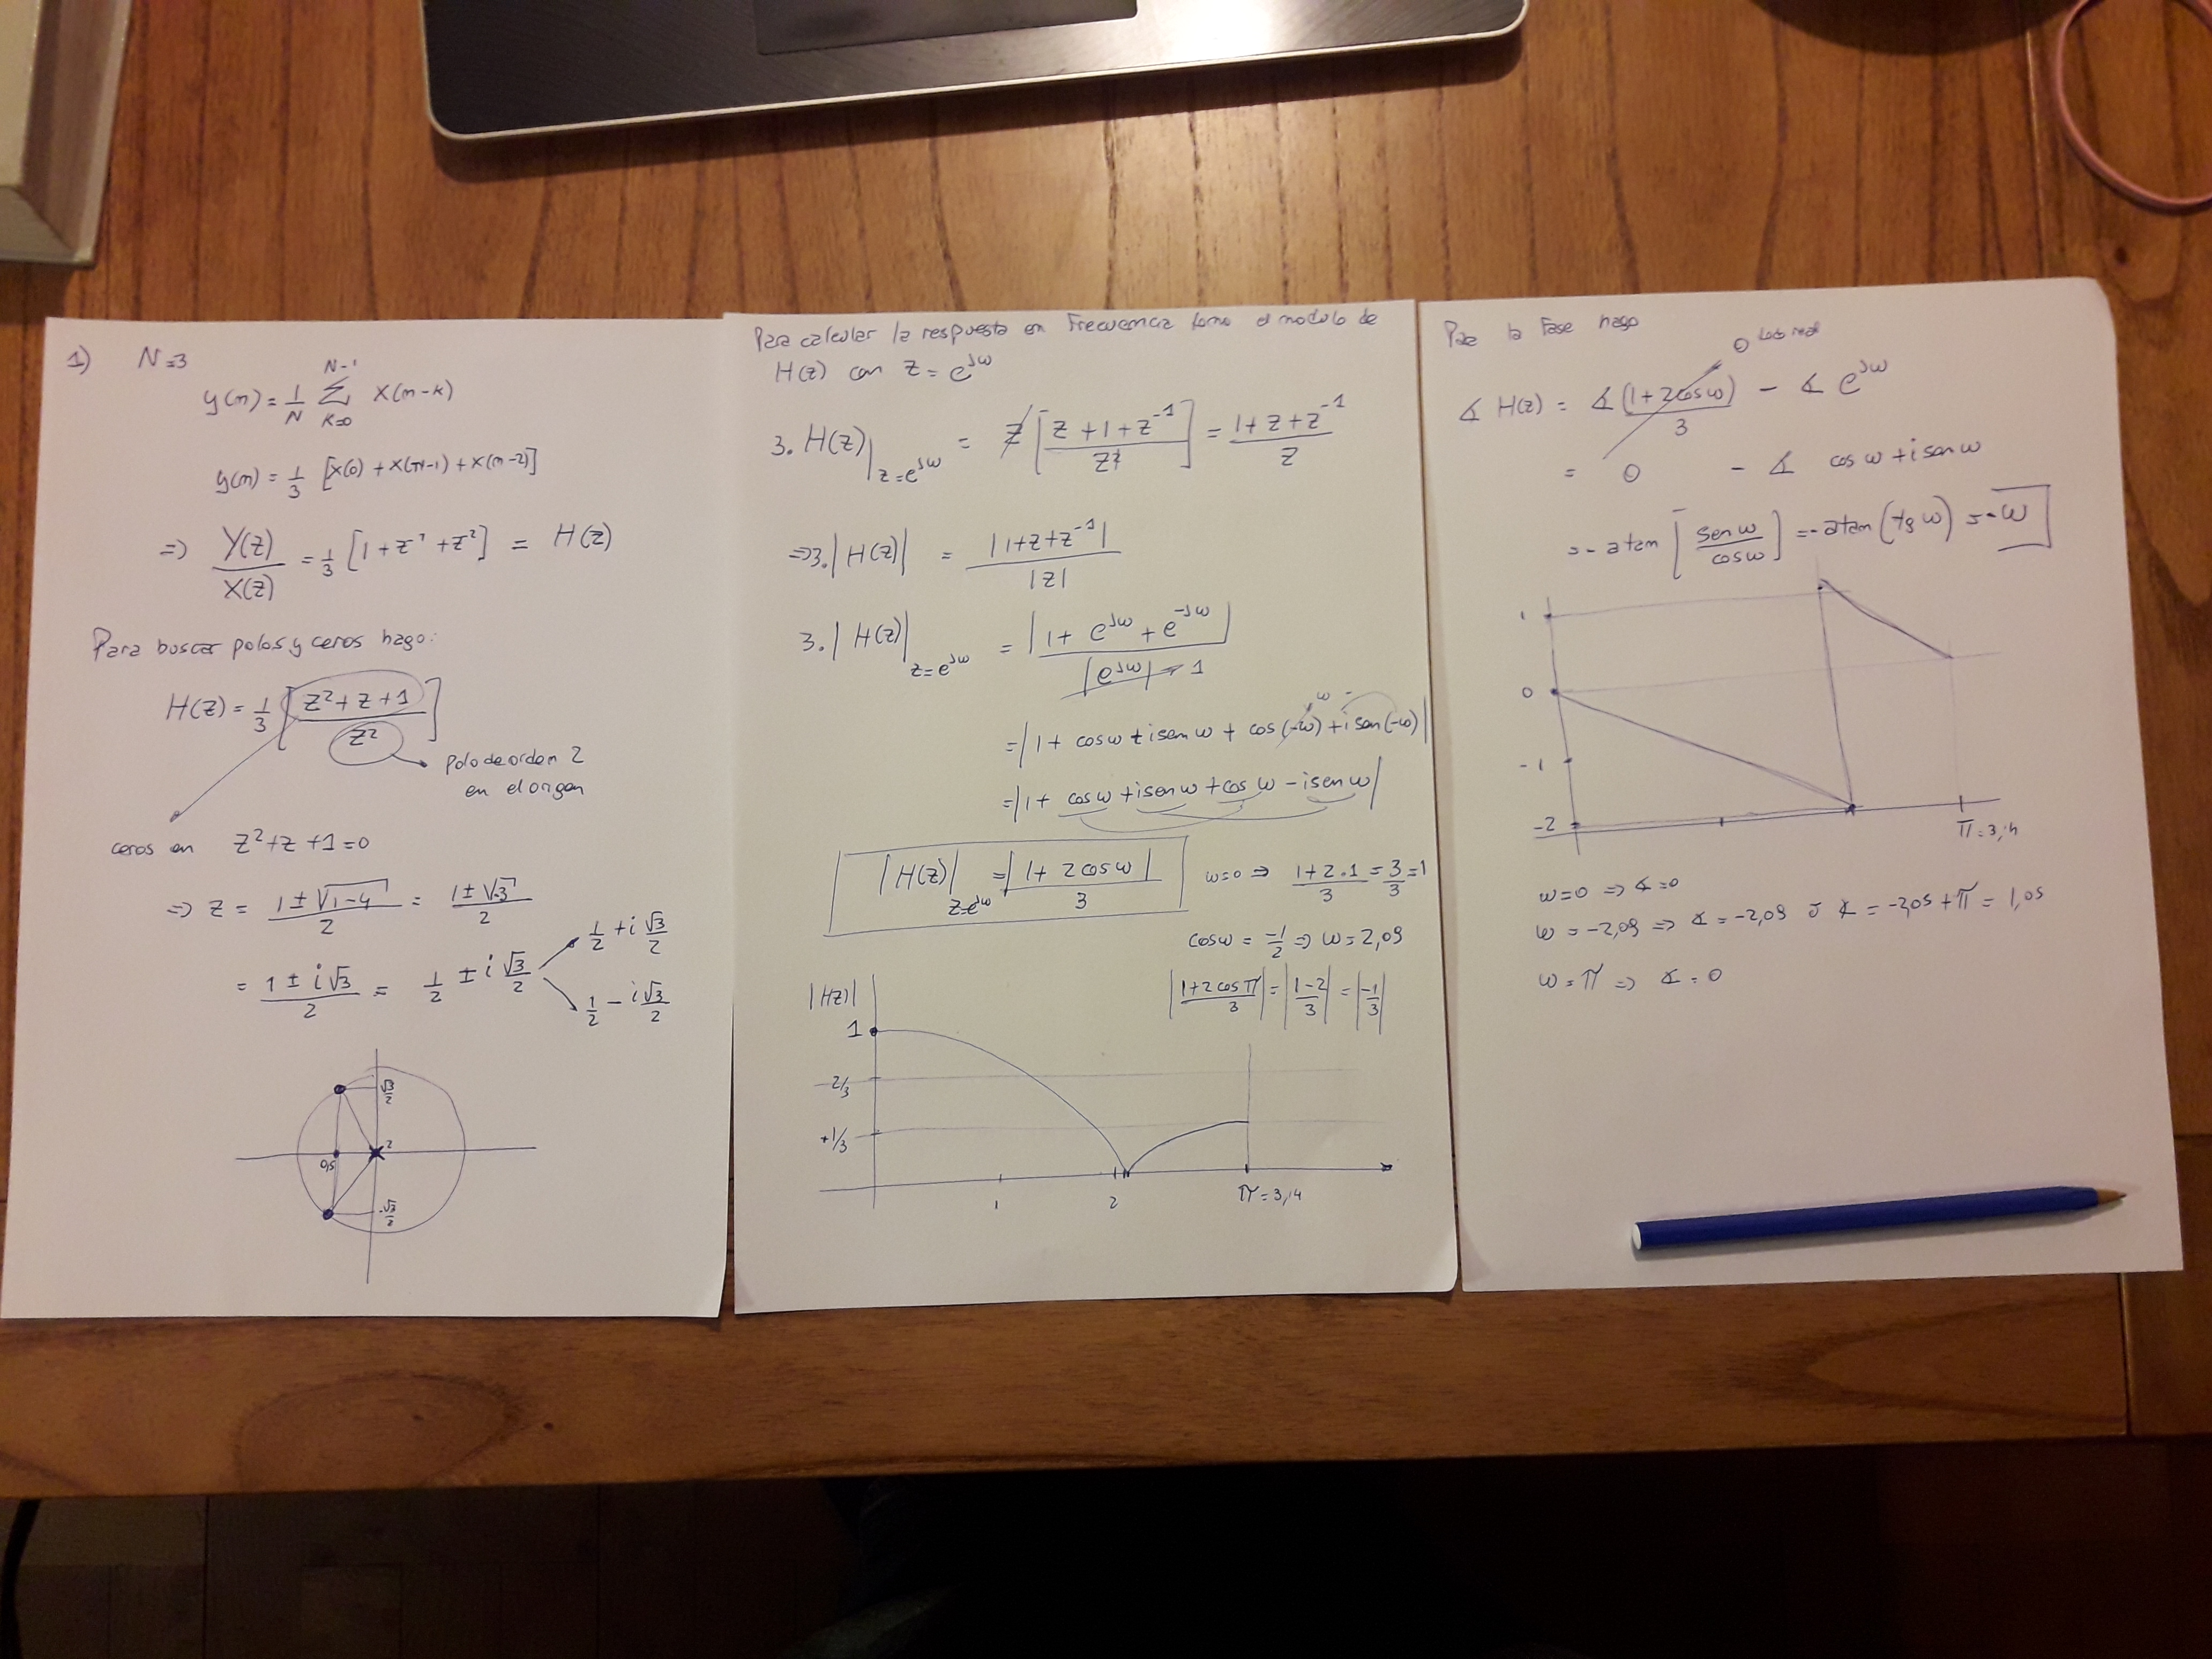 1) N=3
y(n) = 1/N Σ_{k=0}^{N-1} x(n-k)
y(n) = 1/3 [x(n) + x(n-1) + x(n-2)]
=> Y(z)/X(z) = 1/3 [1 + z^-1 + z^-2] = H(z)
Para buscar polos y ceros hago:
H(z) = 1/3 [(z^2 + z + 1)/z^2]
Polo de orden 2
en el origen
ceros en z^2 + z + 1 = 0
=> z = (1 ± √(1-4))/2 = (1 ± √-3)/2
= (1 ± i√3)/2 = 1/2 ± i √3/2
1/2 + i √3/2
1/2 - i √3/2
√3/2
2
-√3/2
Para calcular la respuesta en frecuencia tomo el modulo de
H(z) con z = e^jω
3. H(z)|_{z=e^jω} = z [(z + 1 + z^-1)/z^2] = (1 + z + z^-1)/z
=> 3.|H(z)| = |1 + z + z^-1|/|z|
3.|H(z)|_{z=e^jω} = |1 + e^jω + e^-jω|/|e^jω| → 1
= |1 + cos ω + i sen ω + cos(-ω) + i sen(-ω)|
= |1 + cos ω + i sen ω + cos ω - i sen ω|
|H(z)|_{z=e^jω} = |(1 + 2 cos ω)/3|
ω=0 => (1 + 2.1)/3 = 3/3 = 1
cos ω = -1/2 => ω = 2,09
|(1 + 2 cos π)/3| = |(1-2)/3| = |-1/3|
|H(z)|
1
2/3
1/3
1
2
π = 3,14
Para la fase hago
∡ H(z) = ∡ ((1 + 2cos ω)/3) - ∡ e^jω
0
= 0 - ∡ cos ω + i sen ω
= - atan [sen ω/cos ω] = - atan (tg ω) = -ω
1
0
-1
-2
π = 3,14
ω=0 => ∡ = 0
ω = -2,09 => ∡ = -2,09 ó ∡ = -2,09 + π = 1,05
ω = π => ∡ = 0